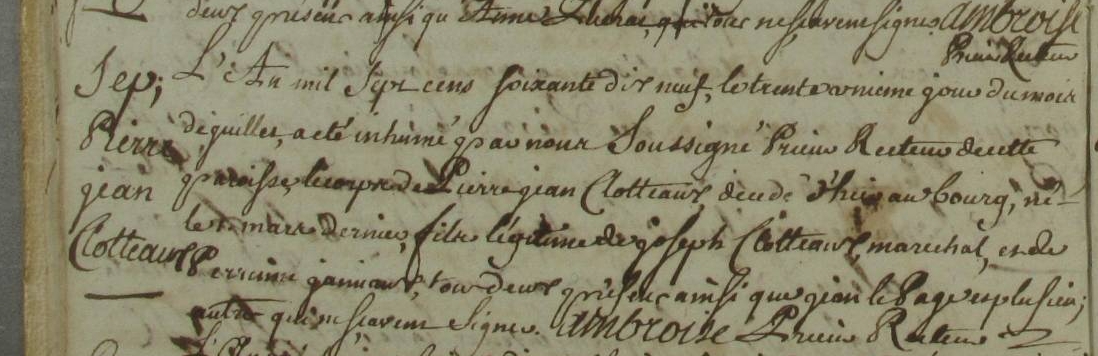 deux présens ainsi qu Anne qui ne sçavent signer. ambroise
Prieur Recteur
Sep; L'An mil sept cens soixante dix neuf, le trente unieme jour du mois
Pierre de juillet, a eté inhumé par nous Soussigné Prieur Recteur de cette
jean paroisse, le corps de Pierre jean Clotteaux, decedé d'hier au bourg, né
le mars dernier, fils légitime de joseph Clotteaux, marechal, et de
Clotteaux Perrine tous deux présens ainsi que jean le Page et plusieurs
autres qui ne sçavent signer. ambroise Prieur Recteur